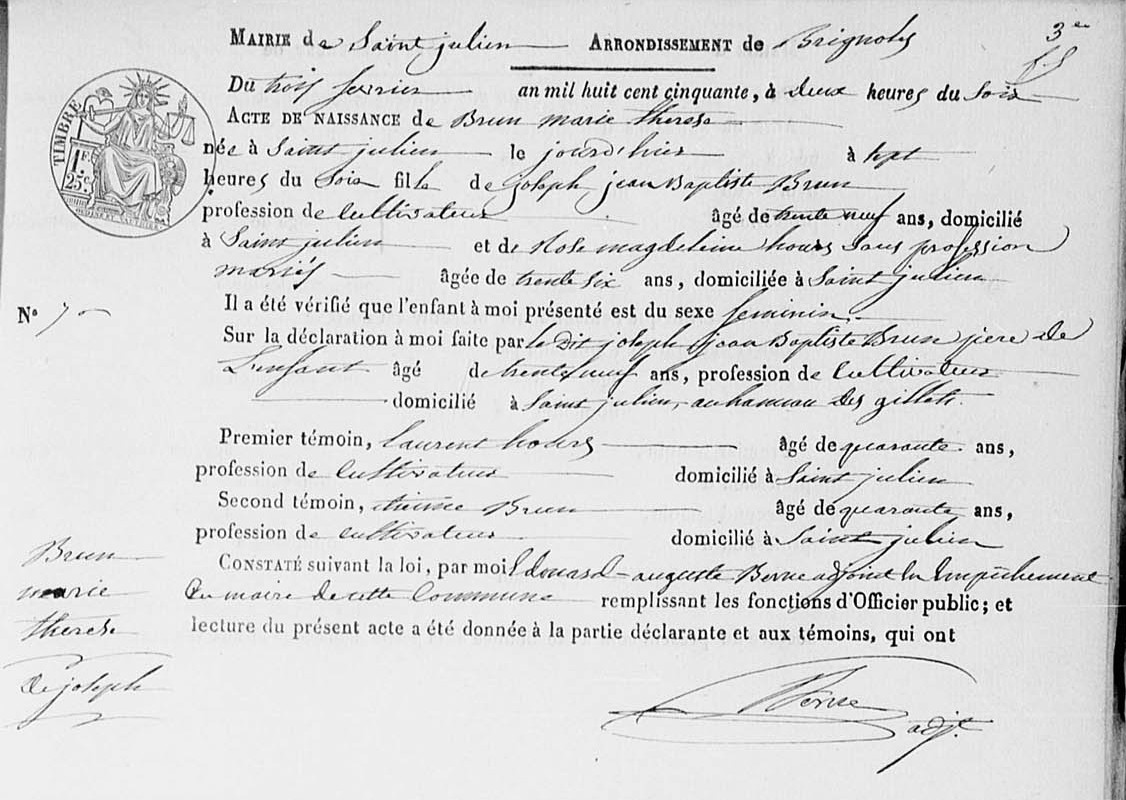 MAIRIE de Saint julien ARRONDISSEMENT de Brignoles 3e
Du trois fevrier an mil huit cent cinquante, à deux heures du Soir
TIMBRE
1 F. 25 c.
ACTE DE NAISSANCE de Brun marie therese
née à Saint julien le jourd'hier à sept
heures du Soir fille de joseph jean Baptiste Brun
profession de cultivateur âgé de trente neuf ans, domicilié
à Saint julien et de Rose magdeleine houes Sans profession
mariés âgée de trente six ans, domiciliée à Saint julien
No 7
Il a été vérifié que l'enfant à moi présenté est du sexe feminin.
Sur la déclaration à moi faite par le dit joseph jean Baptiste Brun pere de
L'enfant âgé de trente neuf ans, profession de cultivateur
domicilié à Saint julien, au hameau des gillets.
Premier témoin, laurent âgé de quarante ans,
profession de cultivateur domicilié à Saint julien
Second témoin, Brun âgé de quarante ans,
profession de cultivateur domicilié à Saint julien
CONSTATÉ suivant la loi, par moi Edouard auguste Berne adjoint en Empêchement
Du maire de cette Commune remplissant les fonctions d'Officier public; et
lecture du présent acte a été donnée à la partie déclarante et aux témoins, qui ont
Brun
marie
therese
de joseph
Berne
adjt.